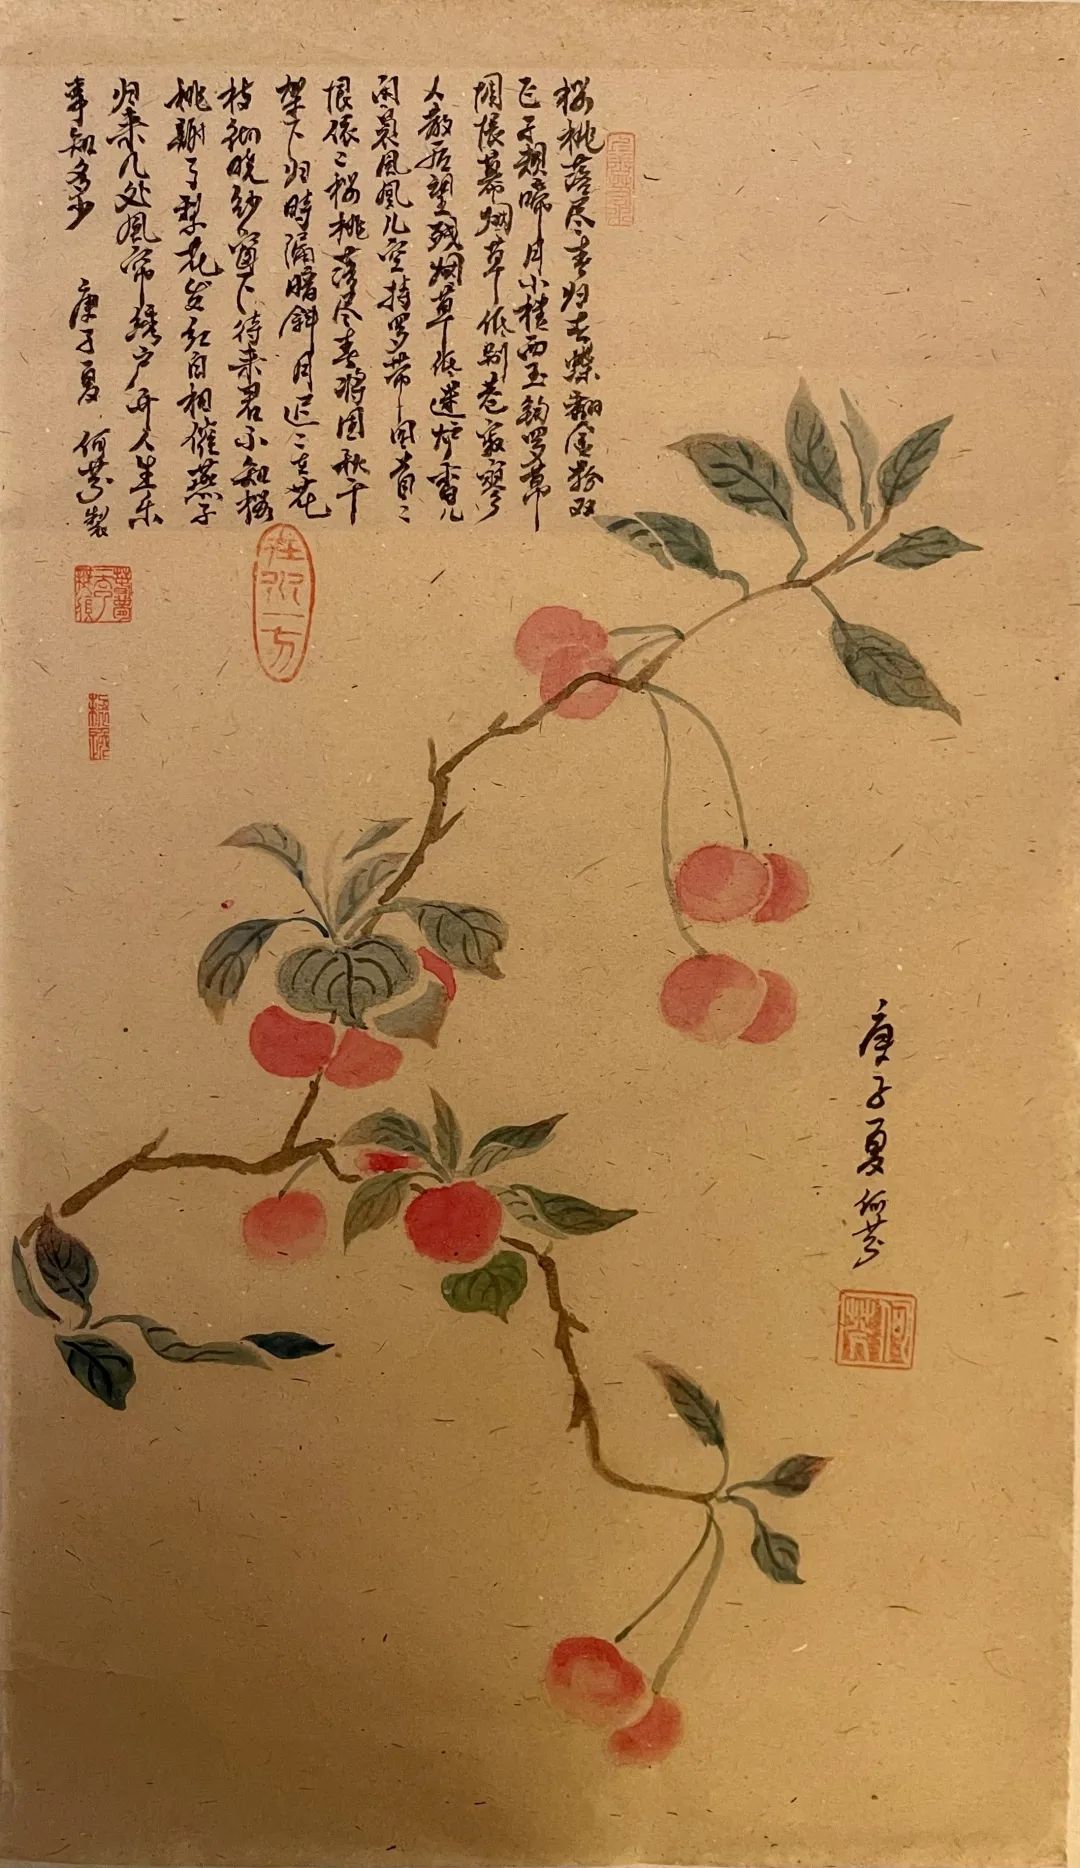 樱桃落尽春归去蝶翻金粉双
飞子规啼月小楼西玉钩罗幕
惆怅暮烟草低别巷寂寥
人散后望残烟草低迷炉香儿
闲袅凤凰儿空持罗带回首
恨依〻樱桃落尽春将困秋千
架下归时漏暗斜月迟〻在花
待来君不知樱
桃谢了梨花发红白相催燕子
归来几处风帘绣户开人生乐
事知多少
庚子夏 何芬製
在水一方
庚子夏
何芬
何芬